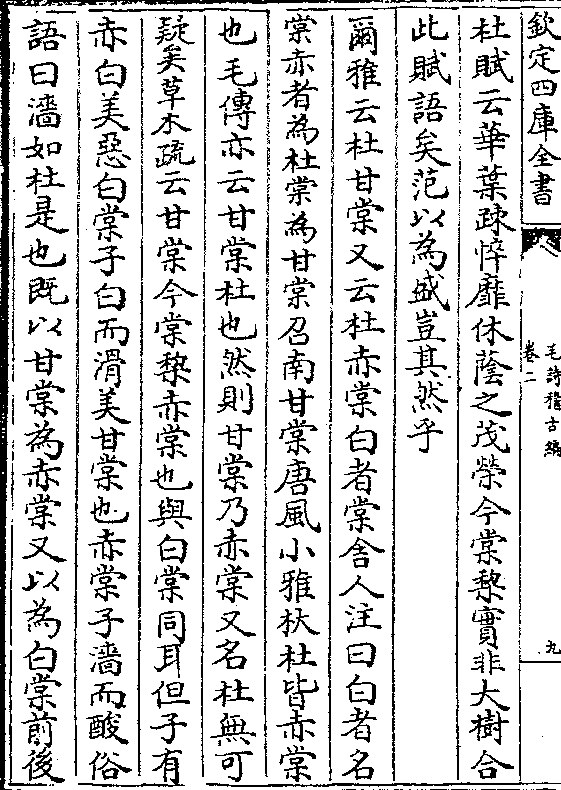 欽定四庫全書
毛詩稽古編
卷二
九
杜賦云華葉疎悴靡休蔭之茂榮今棠棃實非大樹合
此賦語矣范以為盛豈其然乎
爾雅云杜甘棠又云杜赤棠白者棠舍人注曰白者名
棠赤者為杜棠為甘棠召南甘棠唐風小雅杕杜皆赤棠
也毛傳亦云甘棠杜也然則甘棠乃赤棠又名杜無可
疑矣草木疏云甘棠今棠棃赤棠也與白棠同耳但子有
赤白美惡白棠子白而滑美甘棠也赤棠子濇而酸俗
語曰濇如杜是也既以甘棠為赤棠又以為白棠前後